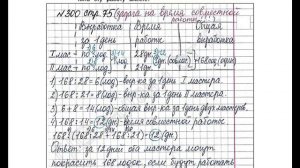 №300 стр.75 (задача на время совместной работы)
Выработка Время Общая
за 1 день работы выработка
I мас - по 28 дн
II мас - по 21 дн 168 лод.
1) 168:28=6 (лод) - выр-ка за 1 день I мастера.
2) 168:21=8 (лод) - выр-ка за 1 день II мастера.
3) 6+8=14 (лод) - общая выр-ка за 1 день двух мастеров.
4) 168:14=12 (дн) - время совместной работы.
168:(168:28+168:21)=12 (дн)
Ответ: за 12 дней оба мастера могут
покрасить 168 лодок, если будут работать